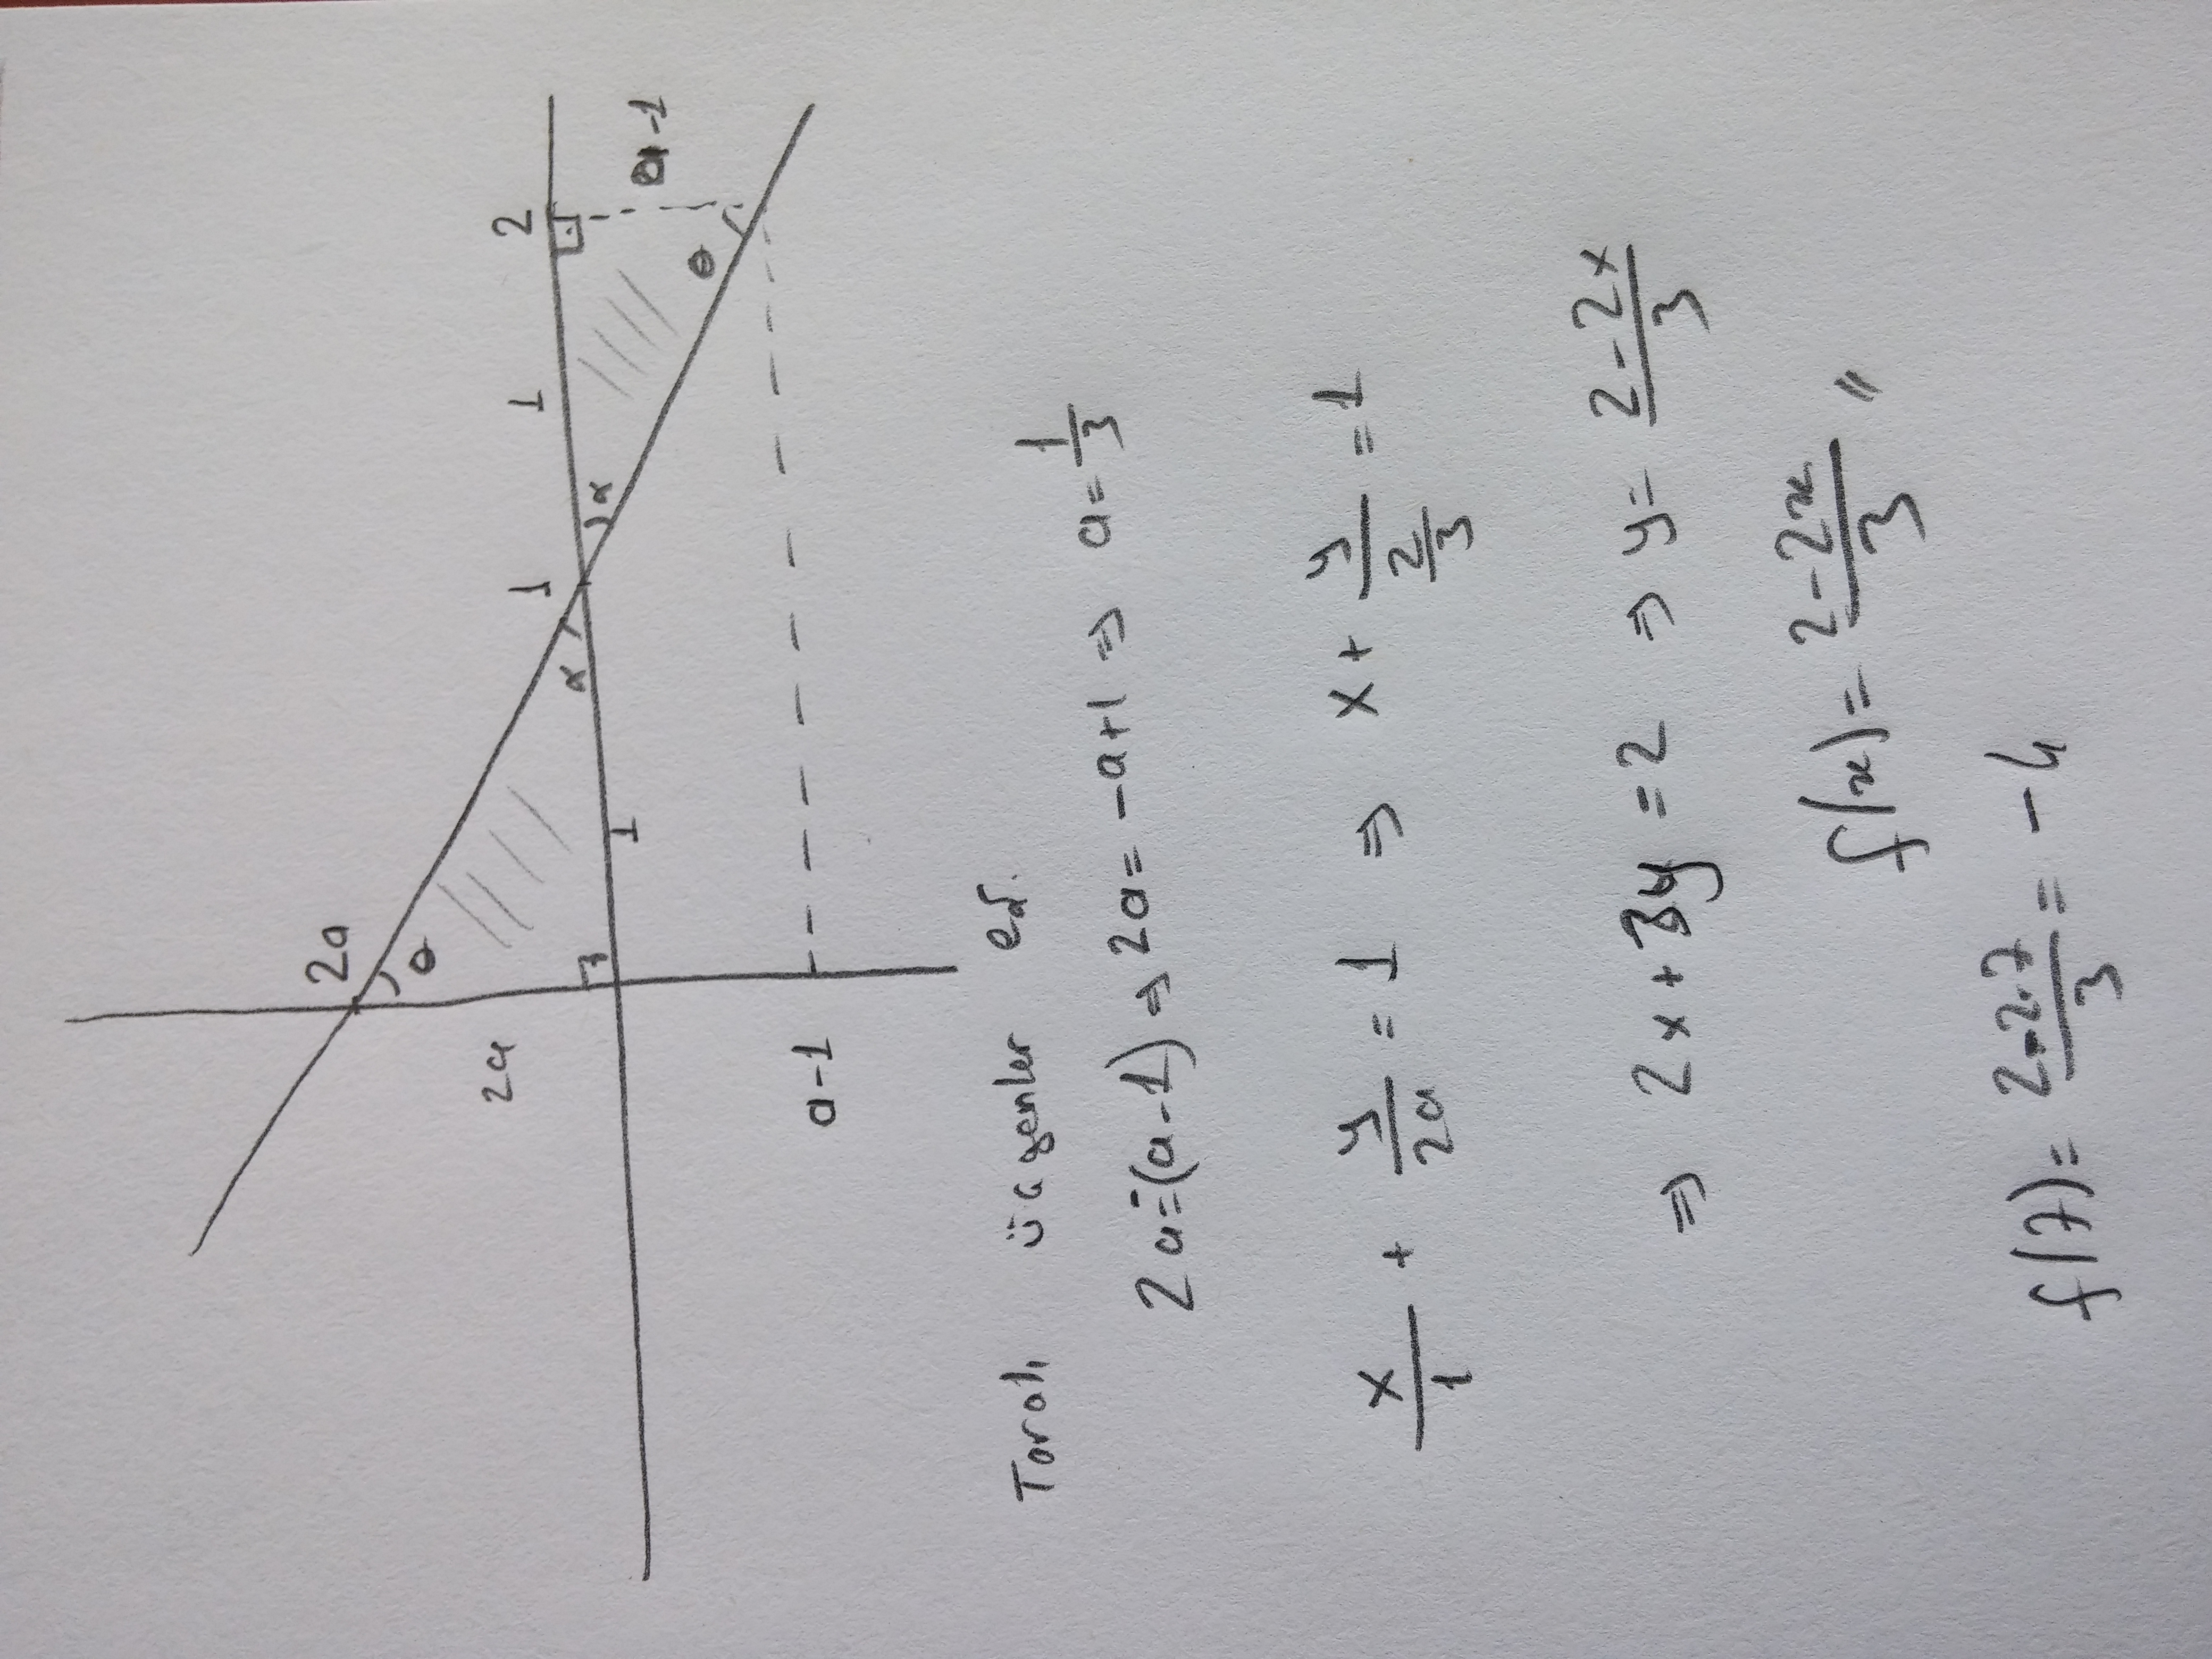 2a
θ
2a
1
α
1
α
1
2
θ
a-1
a-1
Taralı üçgenler eş.
2a=-(a-1) ⇒ 2a=-a+1 ⇒ a=1/3
x/1 + y/2a = 1 ⇒ x + y/(2/3) = 1
⇒ 2x+3y=2 ⇒ y= (2-2x)/3
f(x)= (2-2x)/3 //
f(7)= (2-2.7)/3 = -4